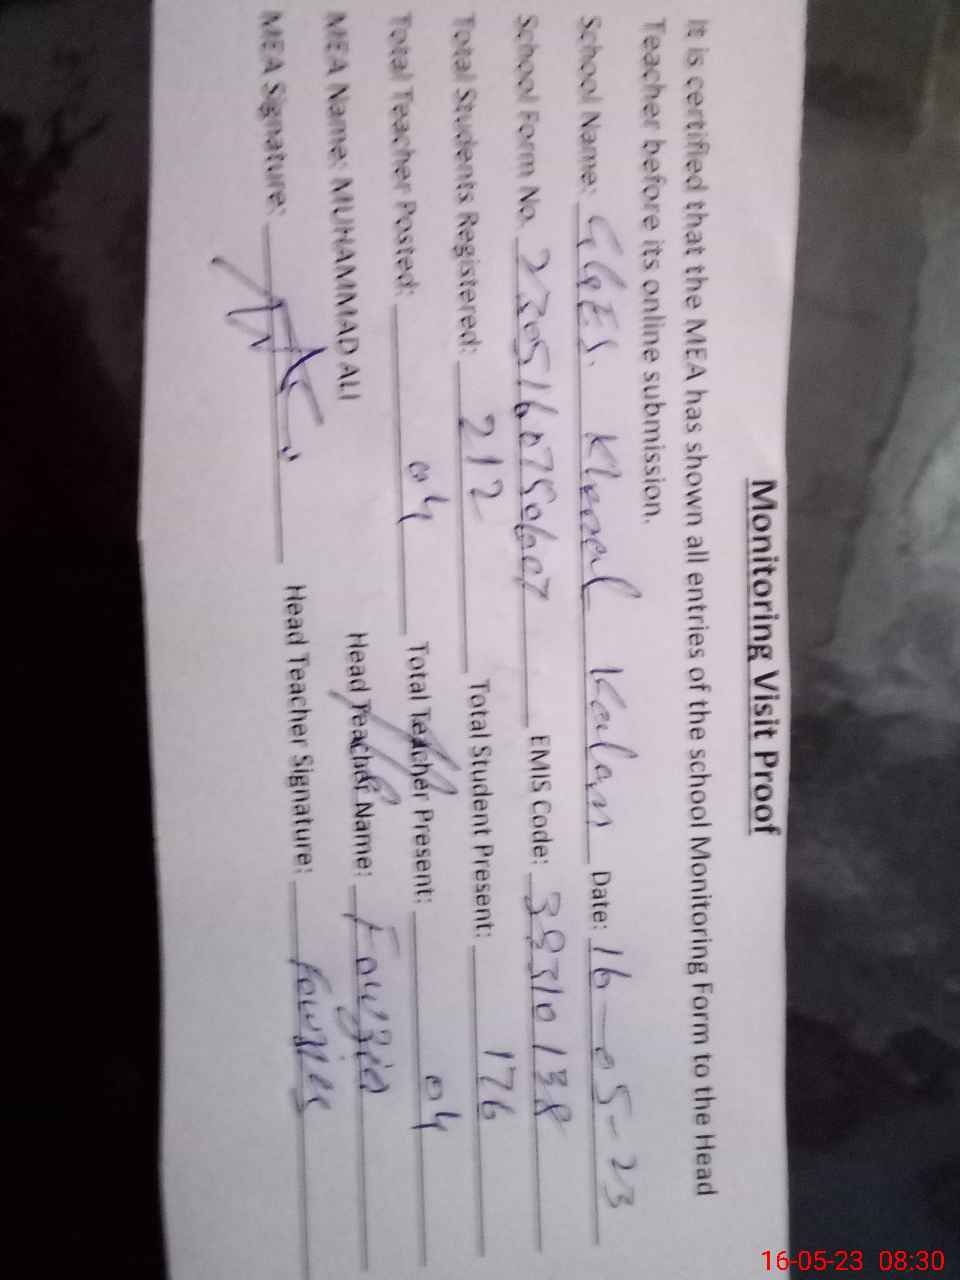 Monitoring Visit Proof
It is certified that the MEA has shown all entries of the school Monitoring Form to the Head
Teacher before its online submission.
School Name: GGES. Kharal Kalan Date: 16-05-23
School Form No. 2305160750607 EMIS Code: 38310138
Total Students Registered: 212 Total Student Present: 176
Total Teacher Posted: 04 Total Teacher Present: 04
MEA Name: MUHAMMAD ALI Head Teacher Name: Fouzia
MEA Signature: Head Teacher Signature: Fouzia
16-05-23 08:30